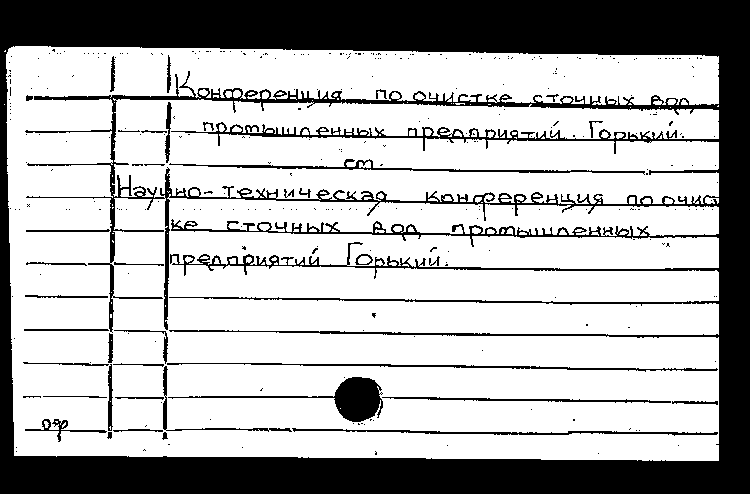 Конференция по очистке сточных вод
промышленных предприятий. Горький.
см.
Научно-техническая конференция по очист
ке сточных вод промышленных
предприятий Горький.